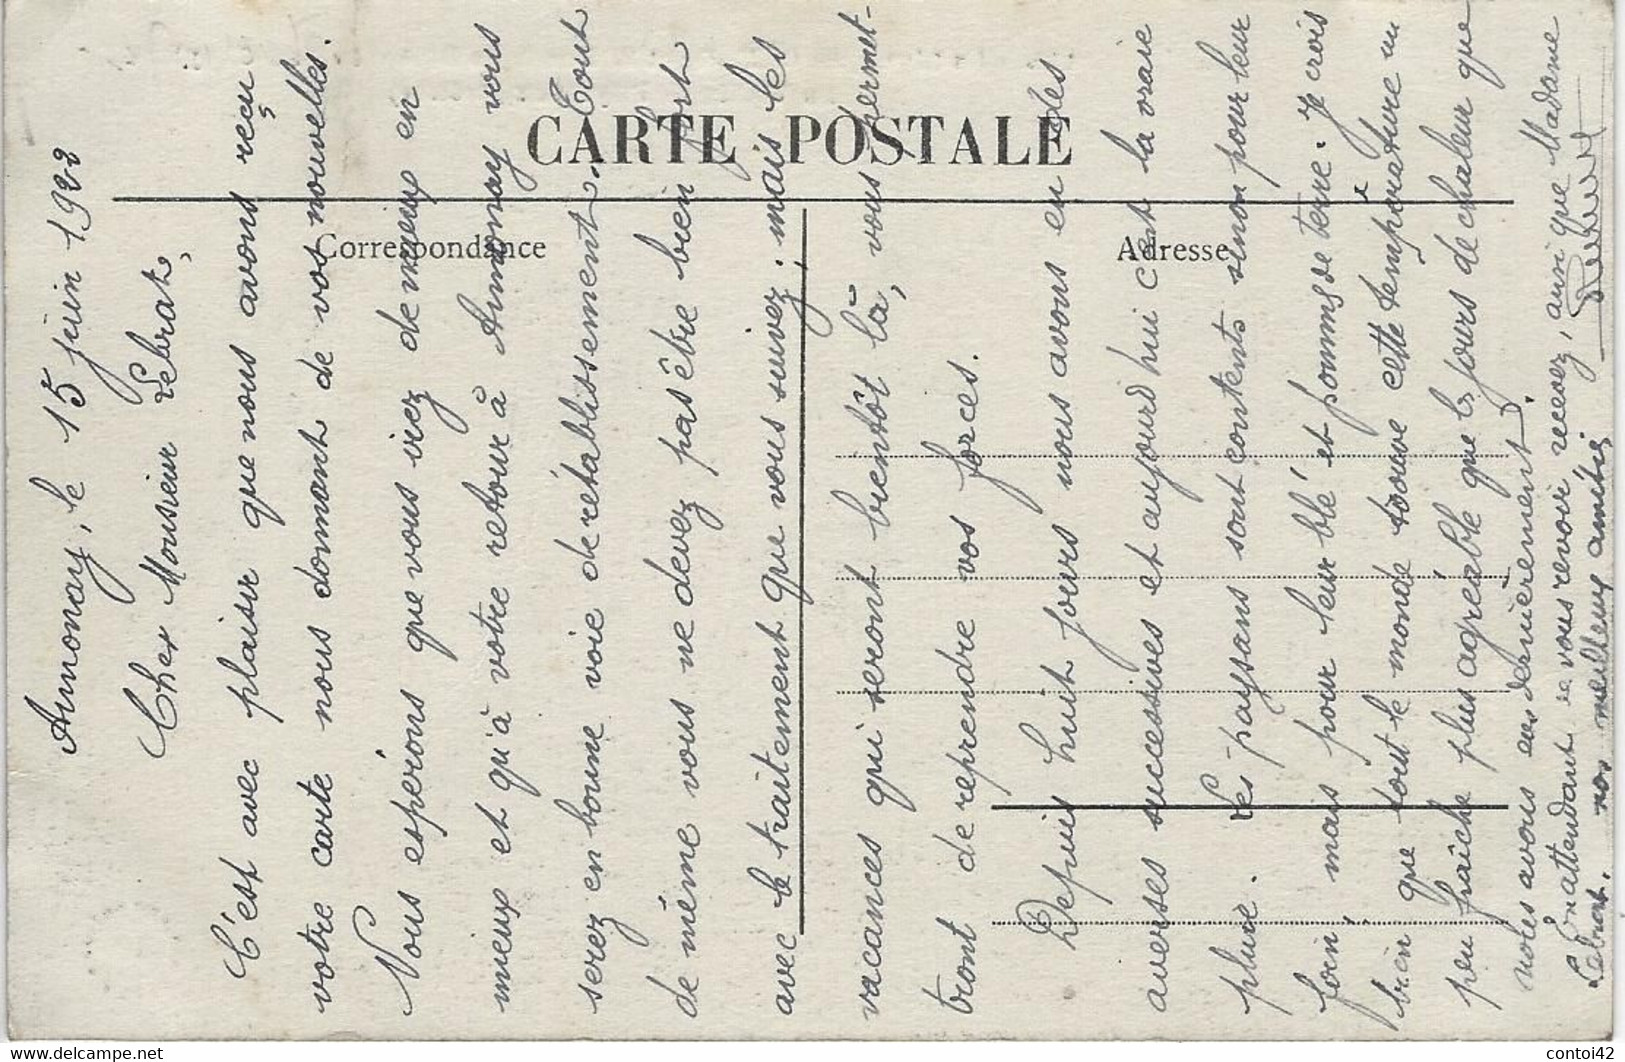 CARTE POSTALE
Correspondance
Adresse
Annonay, le 15 juin 1922
Cher Monsieur Lebrat,
C'est avec plaisir que nous avons reçu
votre carte nous donnant de vos nouvelles.
Nous espérons que vous irez de mieux en
mieux et qu'à votre retour à Annonay vous
serez en bonne voie de rétablissement. Tout
de même vous ne devez pas être bien fort
avec le traitement que vous suivez; mais les
vacances qui seront bientôt là, vous permet-
tront de reprendre vos forces.
Depuis huit jours nous avons eu des
averses successives et aujourd'hui c'est la vraie
pluie. Les paysans sont contents sinon pour leur
foin, mais pour leur blé et pommes de terre. Je crois
bien que tout le monde trouve cette température un
peu fraîche plus agréable que les jours de chaleur que
nous avons eus dernièrement.
En attendant de vous revoir recevez, ainsi que Madame
Lebrat, nos meilleures amitiés
delcampe.net
contoi42